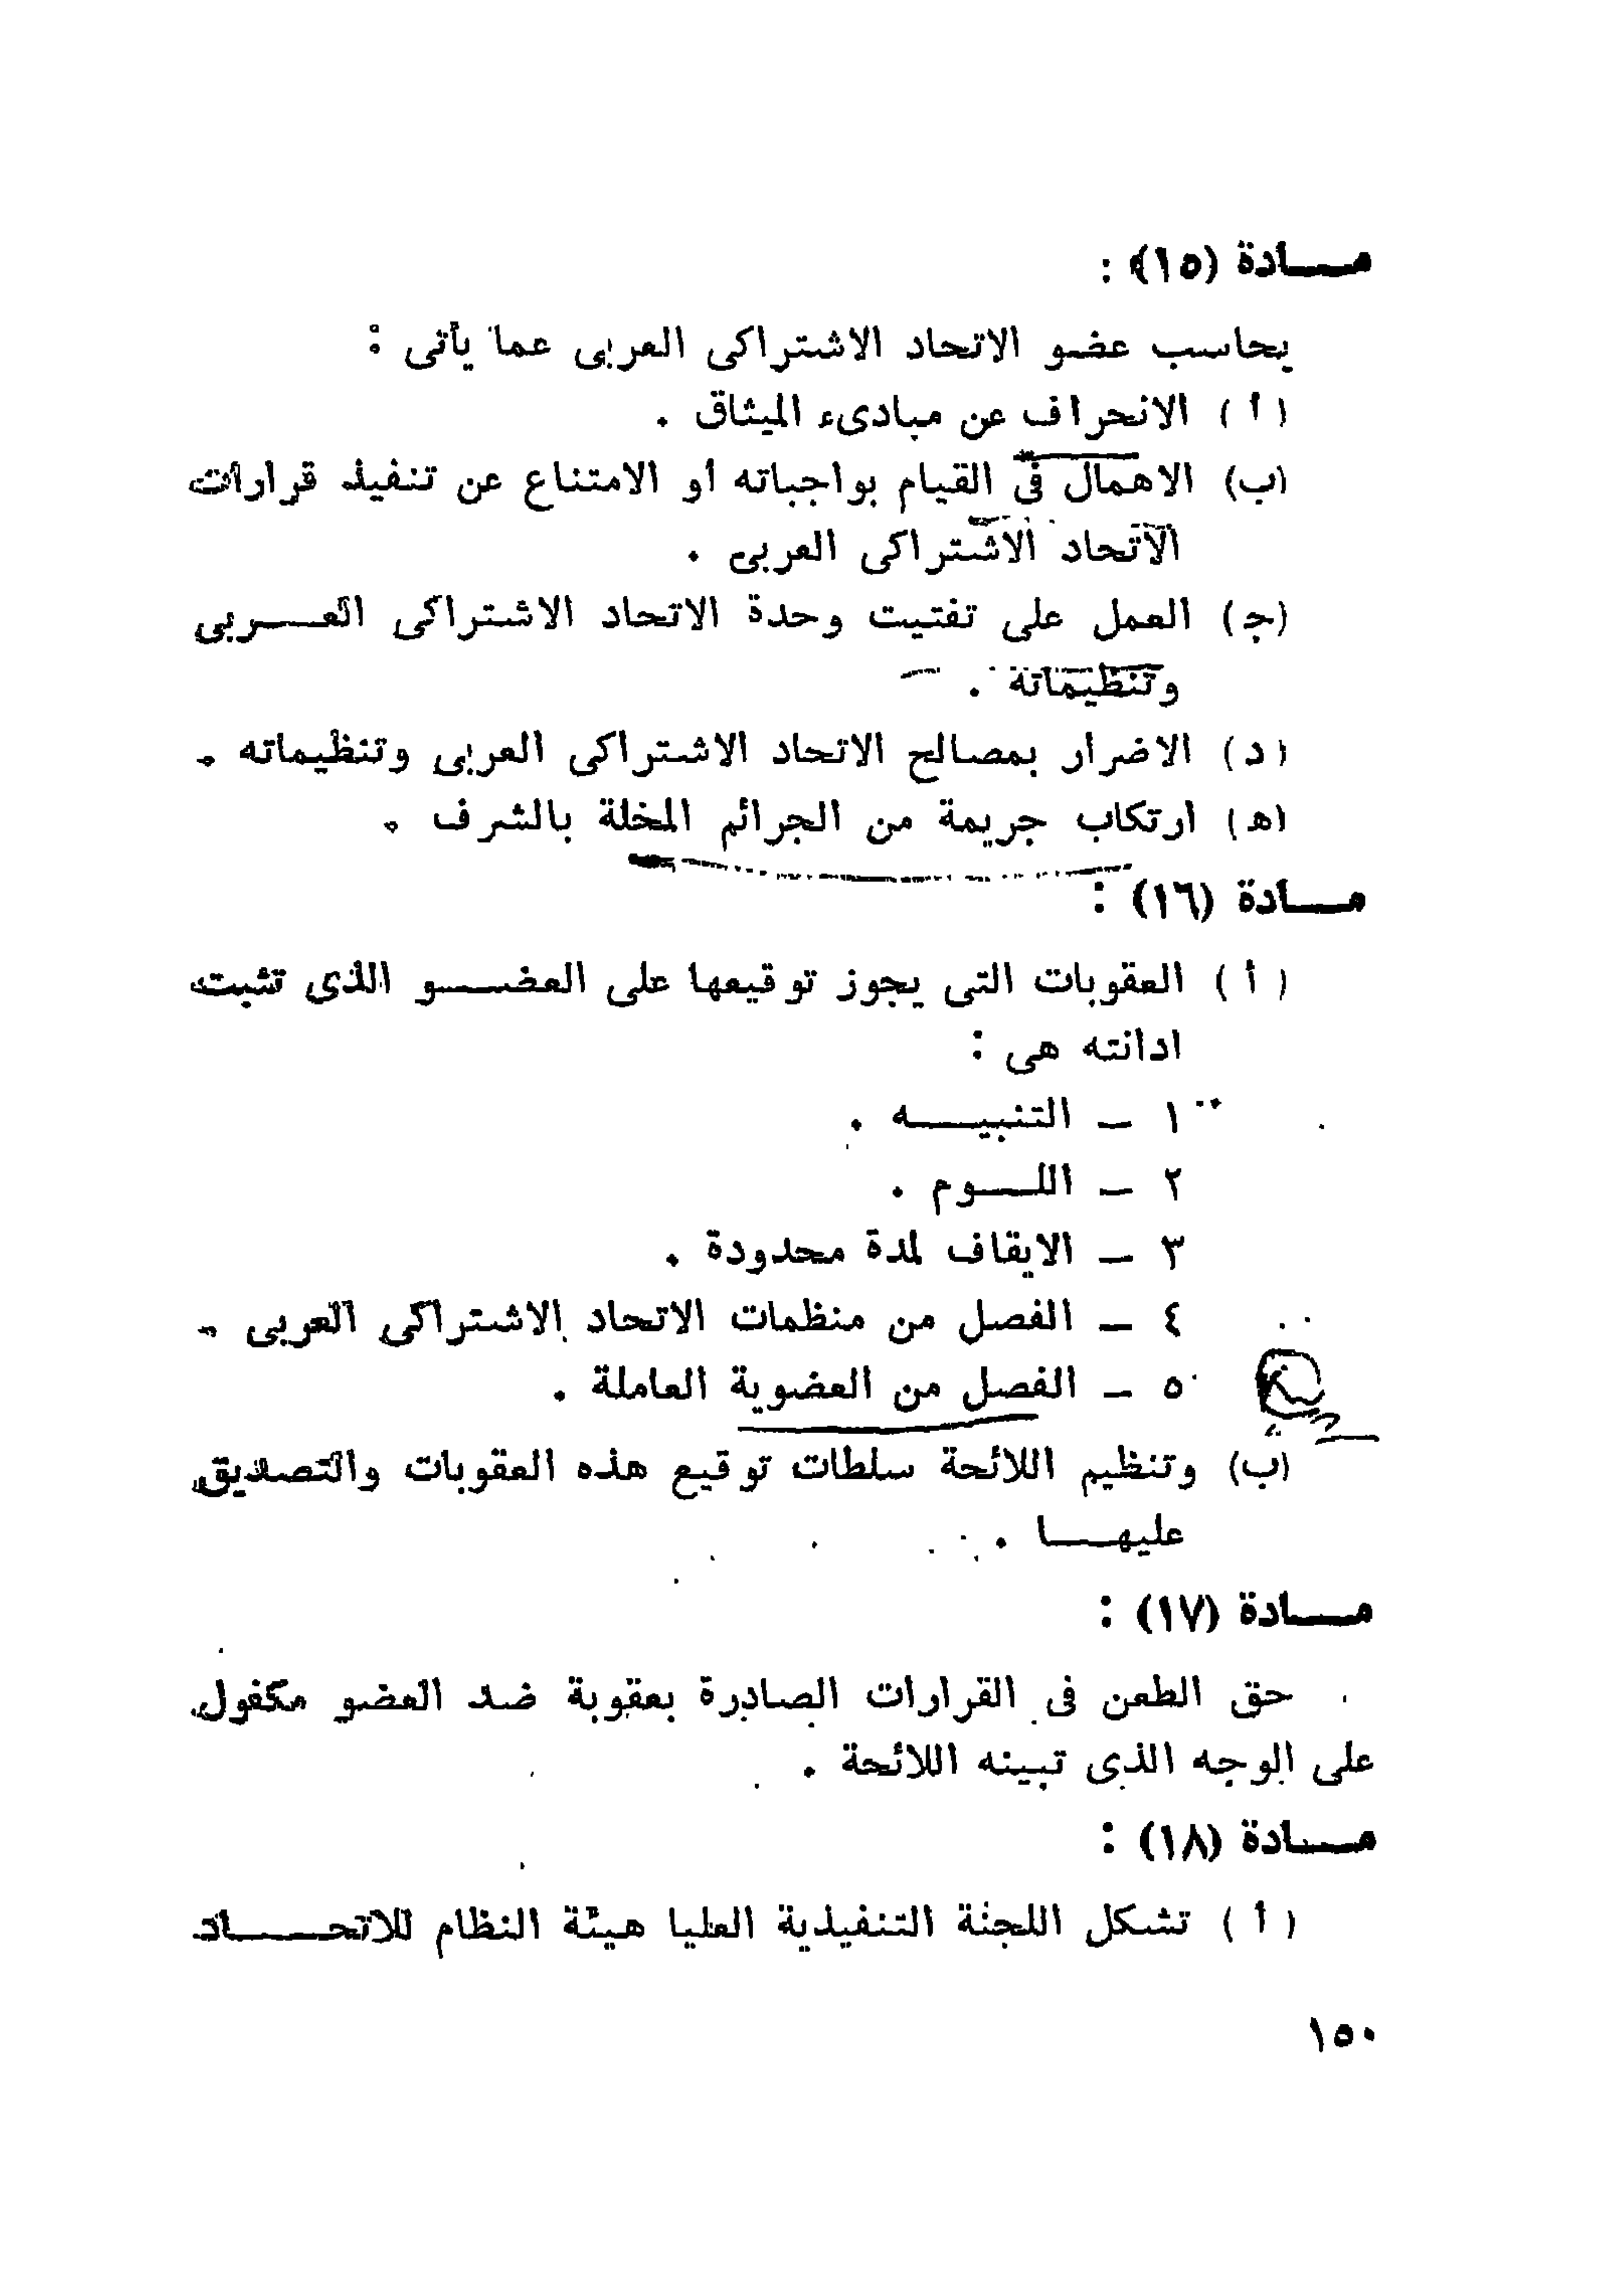 مـــادة (١٥) :
يحاسب عضو الاتحاد الاشتراكى العربى عما يأتى :
( أ ) الانحراف عن مبادىء الميثاق .
(ب) الاهمال فى القيام بواجباته أو الامتناع عن تنفيذ قرارات
الاتحاد الاشتراكى العربى .
(ج) العمل على تفتيت وحدة الاتحاد الاشتراكى العـــربى
وتنظيماته .
( د ) الاضرار بمصالح الاتحاد الاشتراكى العربى وتنظيماته .
(هـ) ارتكاب جريمة من الجرائم المخلة بالشرف .
مـــادة (١٦) :
( أ ) العقوبات التى يجوز توقيعها على العضـــو الذى تثبت
ادانته هى :
١ ـ التنبيـــه .
٢ ـ اللـــوم .
٣ ـ الايقاف لمدة محدودة .
٤ ـ الفصل من منظمات الاتحاد الاشتراكى العربى .
٥ ـ الفصل من العضوية العاملة .
(ب) وتنظيم اللائحة سلطات توقيع هذه العقوبات والتصديق
عليهـــا .
مـــادة (١٧) :
حق الطعن فى القرارات الصادرة بعقوبة ضد العضو مكفول
على الوجه الذى تبينه اللائحة .
مـــادة (١٨) :
( أ ) تشكل اللجنة التنفيذية العليا هيئة النظام للاتحـــاد
١٥٠